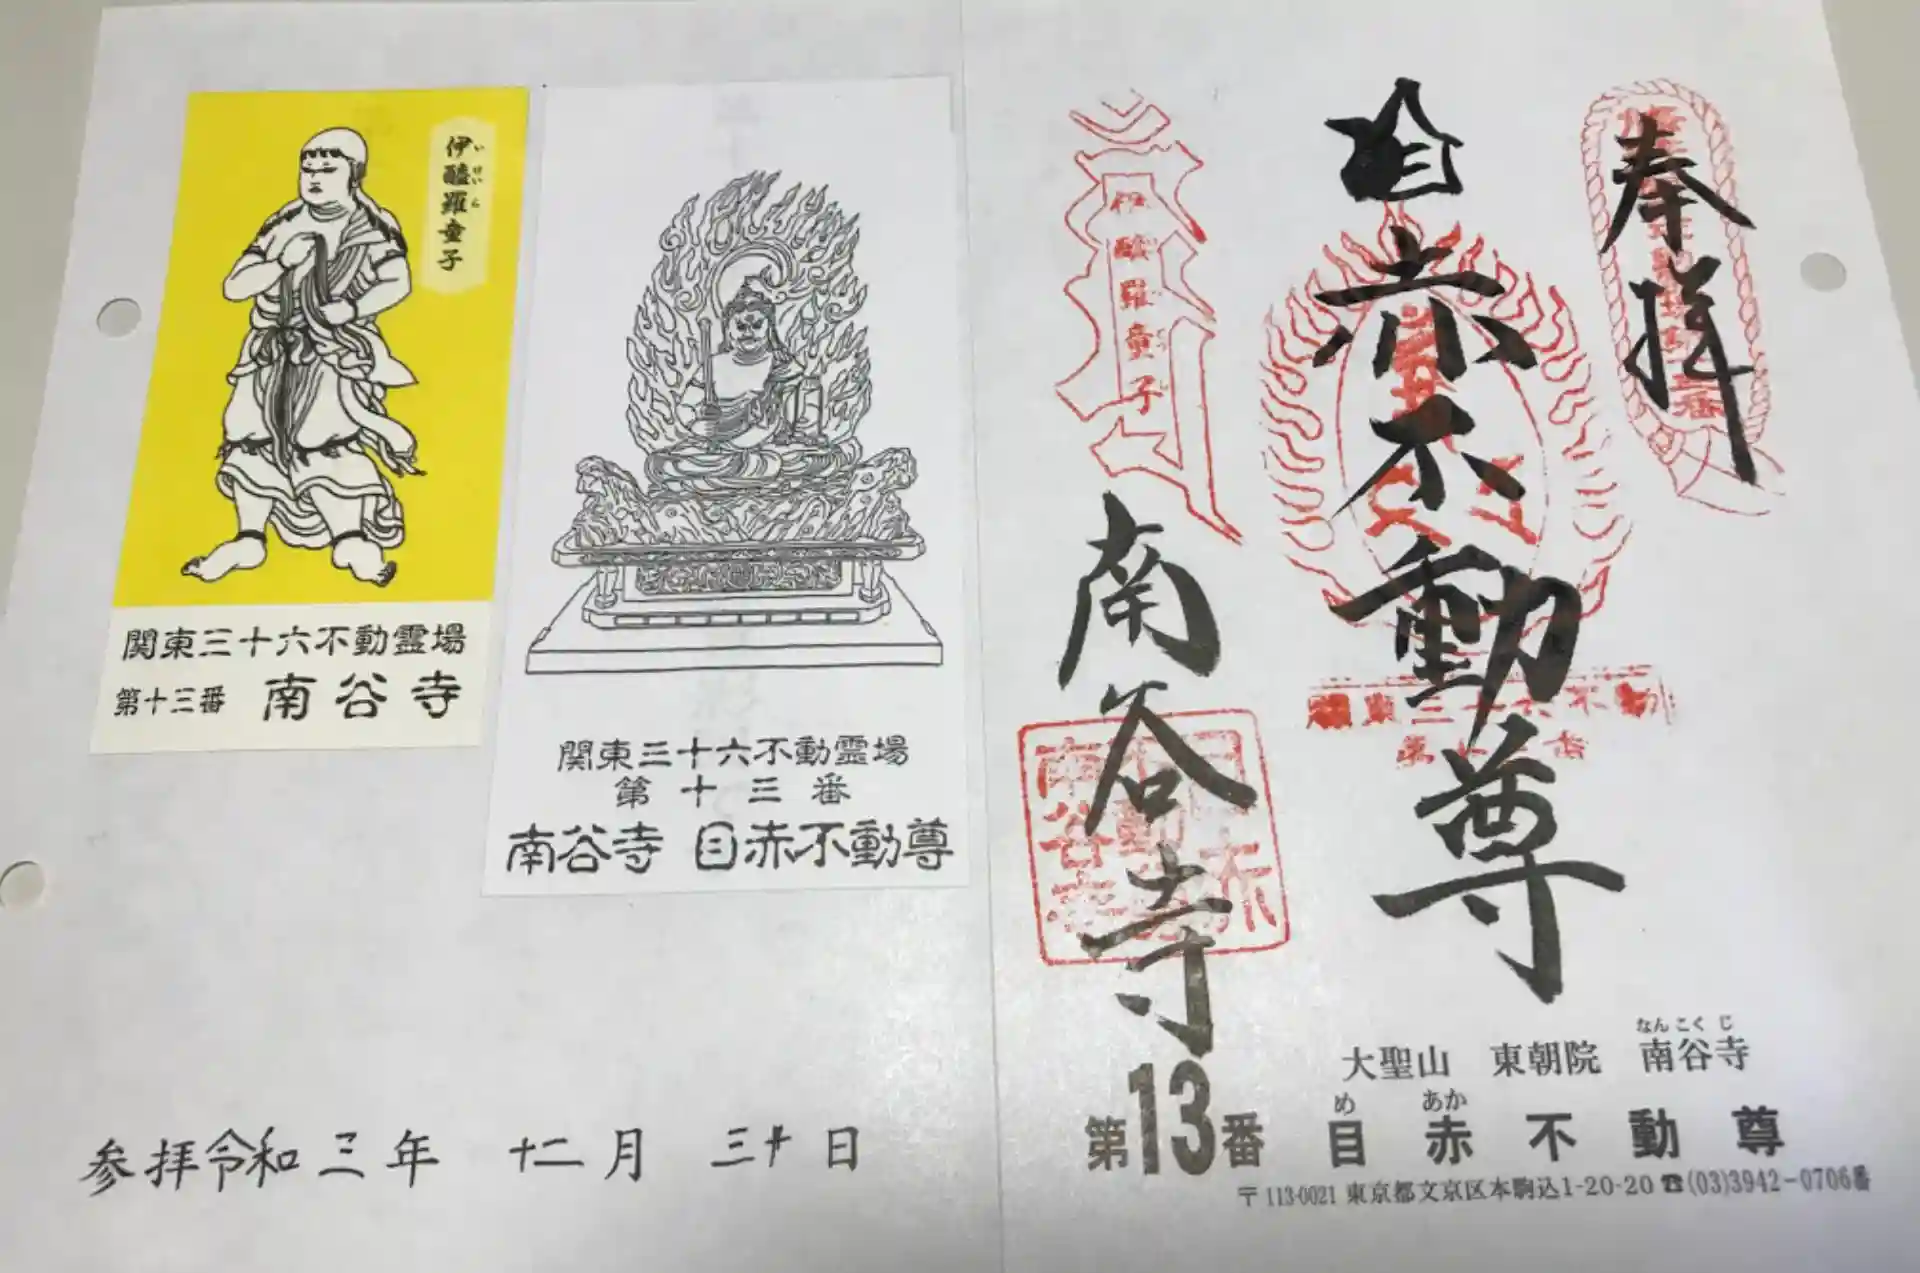 伊醯羅童子
いけいら
関東三十六不動霊場
第十三番 南谷寺
関東三十六不動霊場
第十三番
南谷寺 目赤不動尊
参拝令和三年 十二月 三十日
奉拝
目赤不動尊
関東三十六不動
伊醯羅童子
南谷寺
南谷寺
なんこくじ
大聖山 東朝院 南谷寺
め あか
第13番 目赤不動尊
〒113-0021 東京都文京区本駒込1-20-20 ☎(03)3942-0706番